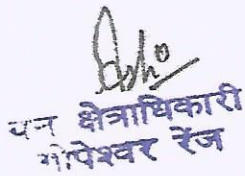 वन क्षेत्राधिकारी
गोपेश्वर रेंज